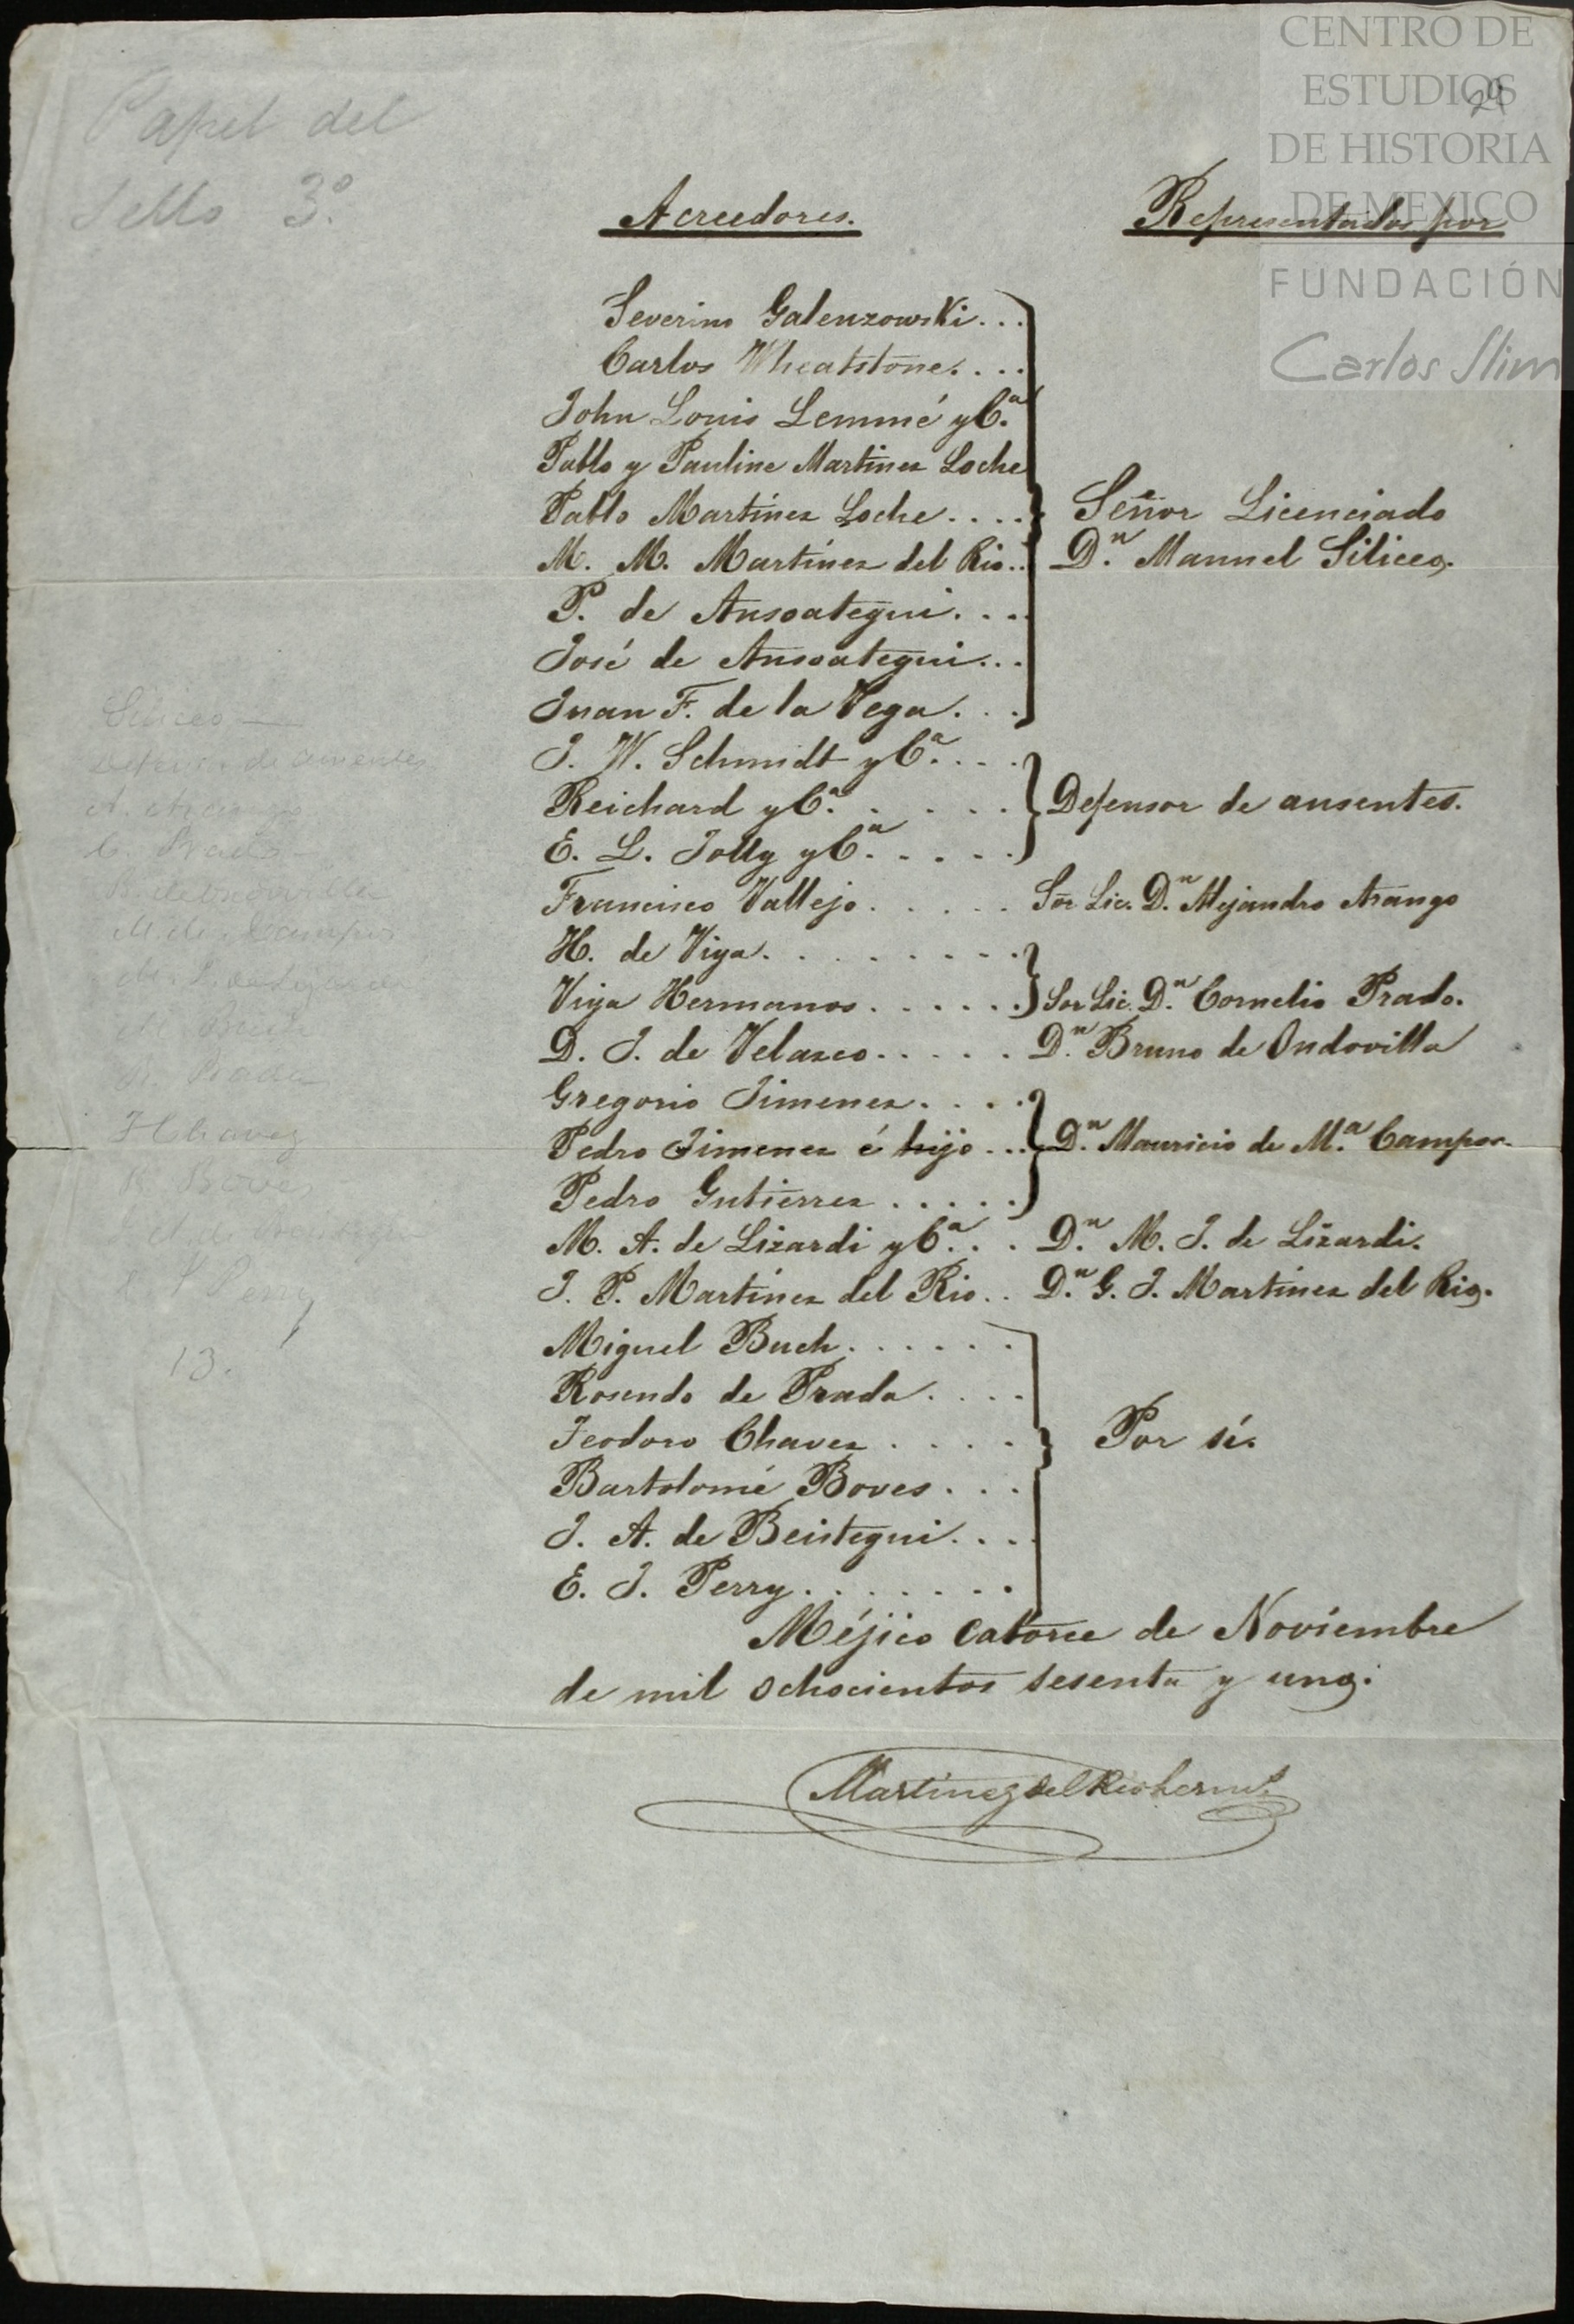 CENTRO DE
ESTUDIOS
DE HISTORIA
DE MEXICO
FUNDACIÓN
Carlos Slim
Papel del
Sello 3º
Acreedores. Representados por
Severino Galenzowski...
Carlos Wheatstone....
John Louis Lemmé y Cª
Pablo y Pauline Martinez Loche
Pablo Martínez Loche.... Señor Licenciado
M. M. Martínez del Rio.. Dn. Manuel Siliceo.
P. de Ansoategui....
José de Ansoategui...
Juan F. de la Vega...
J. W. Schmidt y Cª....
Reichard y Cª..... Defensor de ausentes.
E. L. Jolly y Cª.....
Francisco Vallejo..... Sor Lic. Dn. Alejandro Arango
H. de Viya.........
Viya Hermanos...... Sor Lic. Dn. Cornelio Prado.
D. J. de Velasco..... Dn. Bruno de Ondovilla
Gregorio Jimenez....
Pedro Jimenez é hijo... Dn. Mauricio de M.ª Campos.
Pedro Gutierrez.....
M. A. de Lizardi y Cª... Dn. M. J. de Lizardi.
J. P. Martínez del Rio.. Dn. G. J. Martínez del Rio.
Miguel Buch......
Rosendo de Prada....
Teodoro Chavez.... Por sí.
Bartolomé Boves...
J. A. de Beistegui....
E. J. Perry.......
Méjico catorce de Noviembre
de mil ochocientos sesenta y uno.
Martinez del Rio herms
Siliceo
Defensor de ausentes
A. Arango
C. Prado
B. de Ondovilla
M. de Campos
Buch
Prada
T Chavez
B Boves
E J Perry
13.